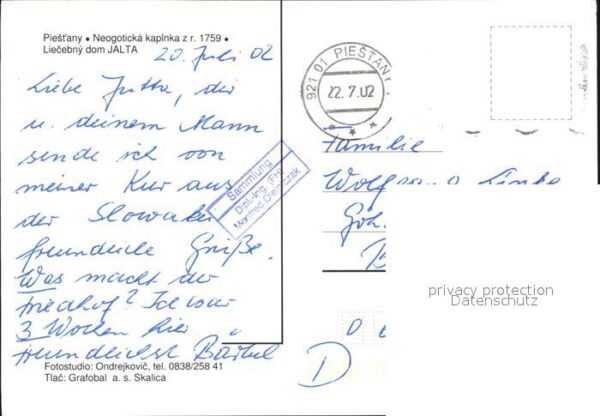 Piešťany • Neogotická kaplnka z r. 1759 •
Liečebný dom JALTA
20. Juli 02
Liebe Jutta, dir
u. deinem Mann
sende ich von
meiner Kur aus
der Slowakei
freundliche Grüße.
Was macht der
Friedhof? Ich war
3 Wochen hier.
Freundlichst Bärbel
Fotostudio: Ondrejkovič, tel. 0838/258 41
Tlač: Grafobal a. s. Skalica
921 01 PIEŠŤAN
22.7.02
Sammlung
Dipl.-Ing. (FH)
Manfred
Familie
Wolfram
privacy protection
Datenschutz
D